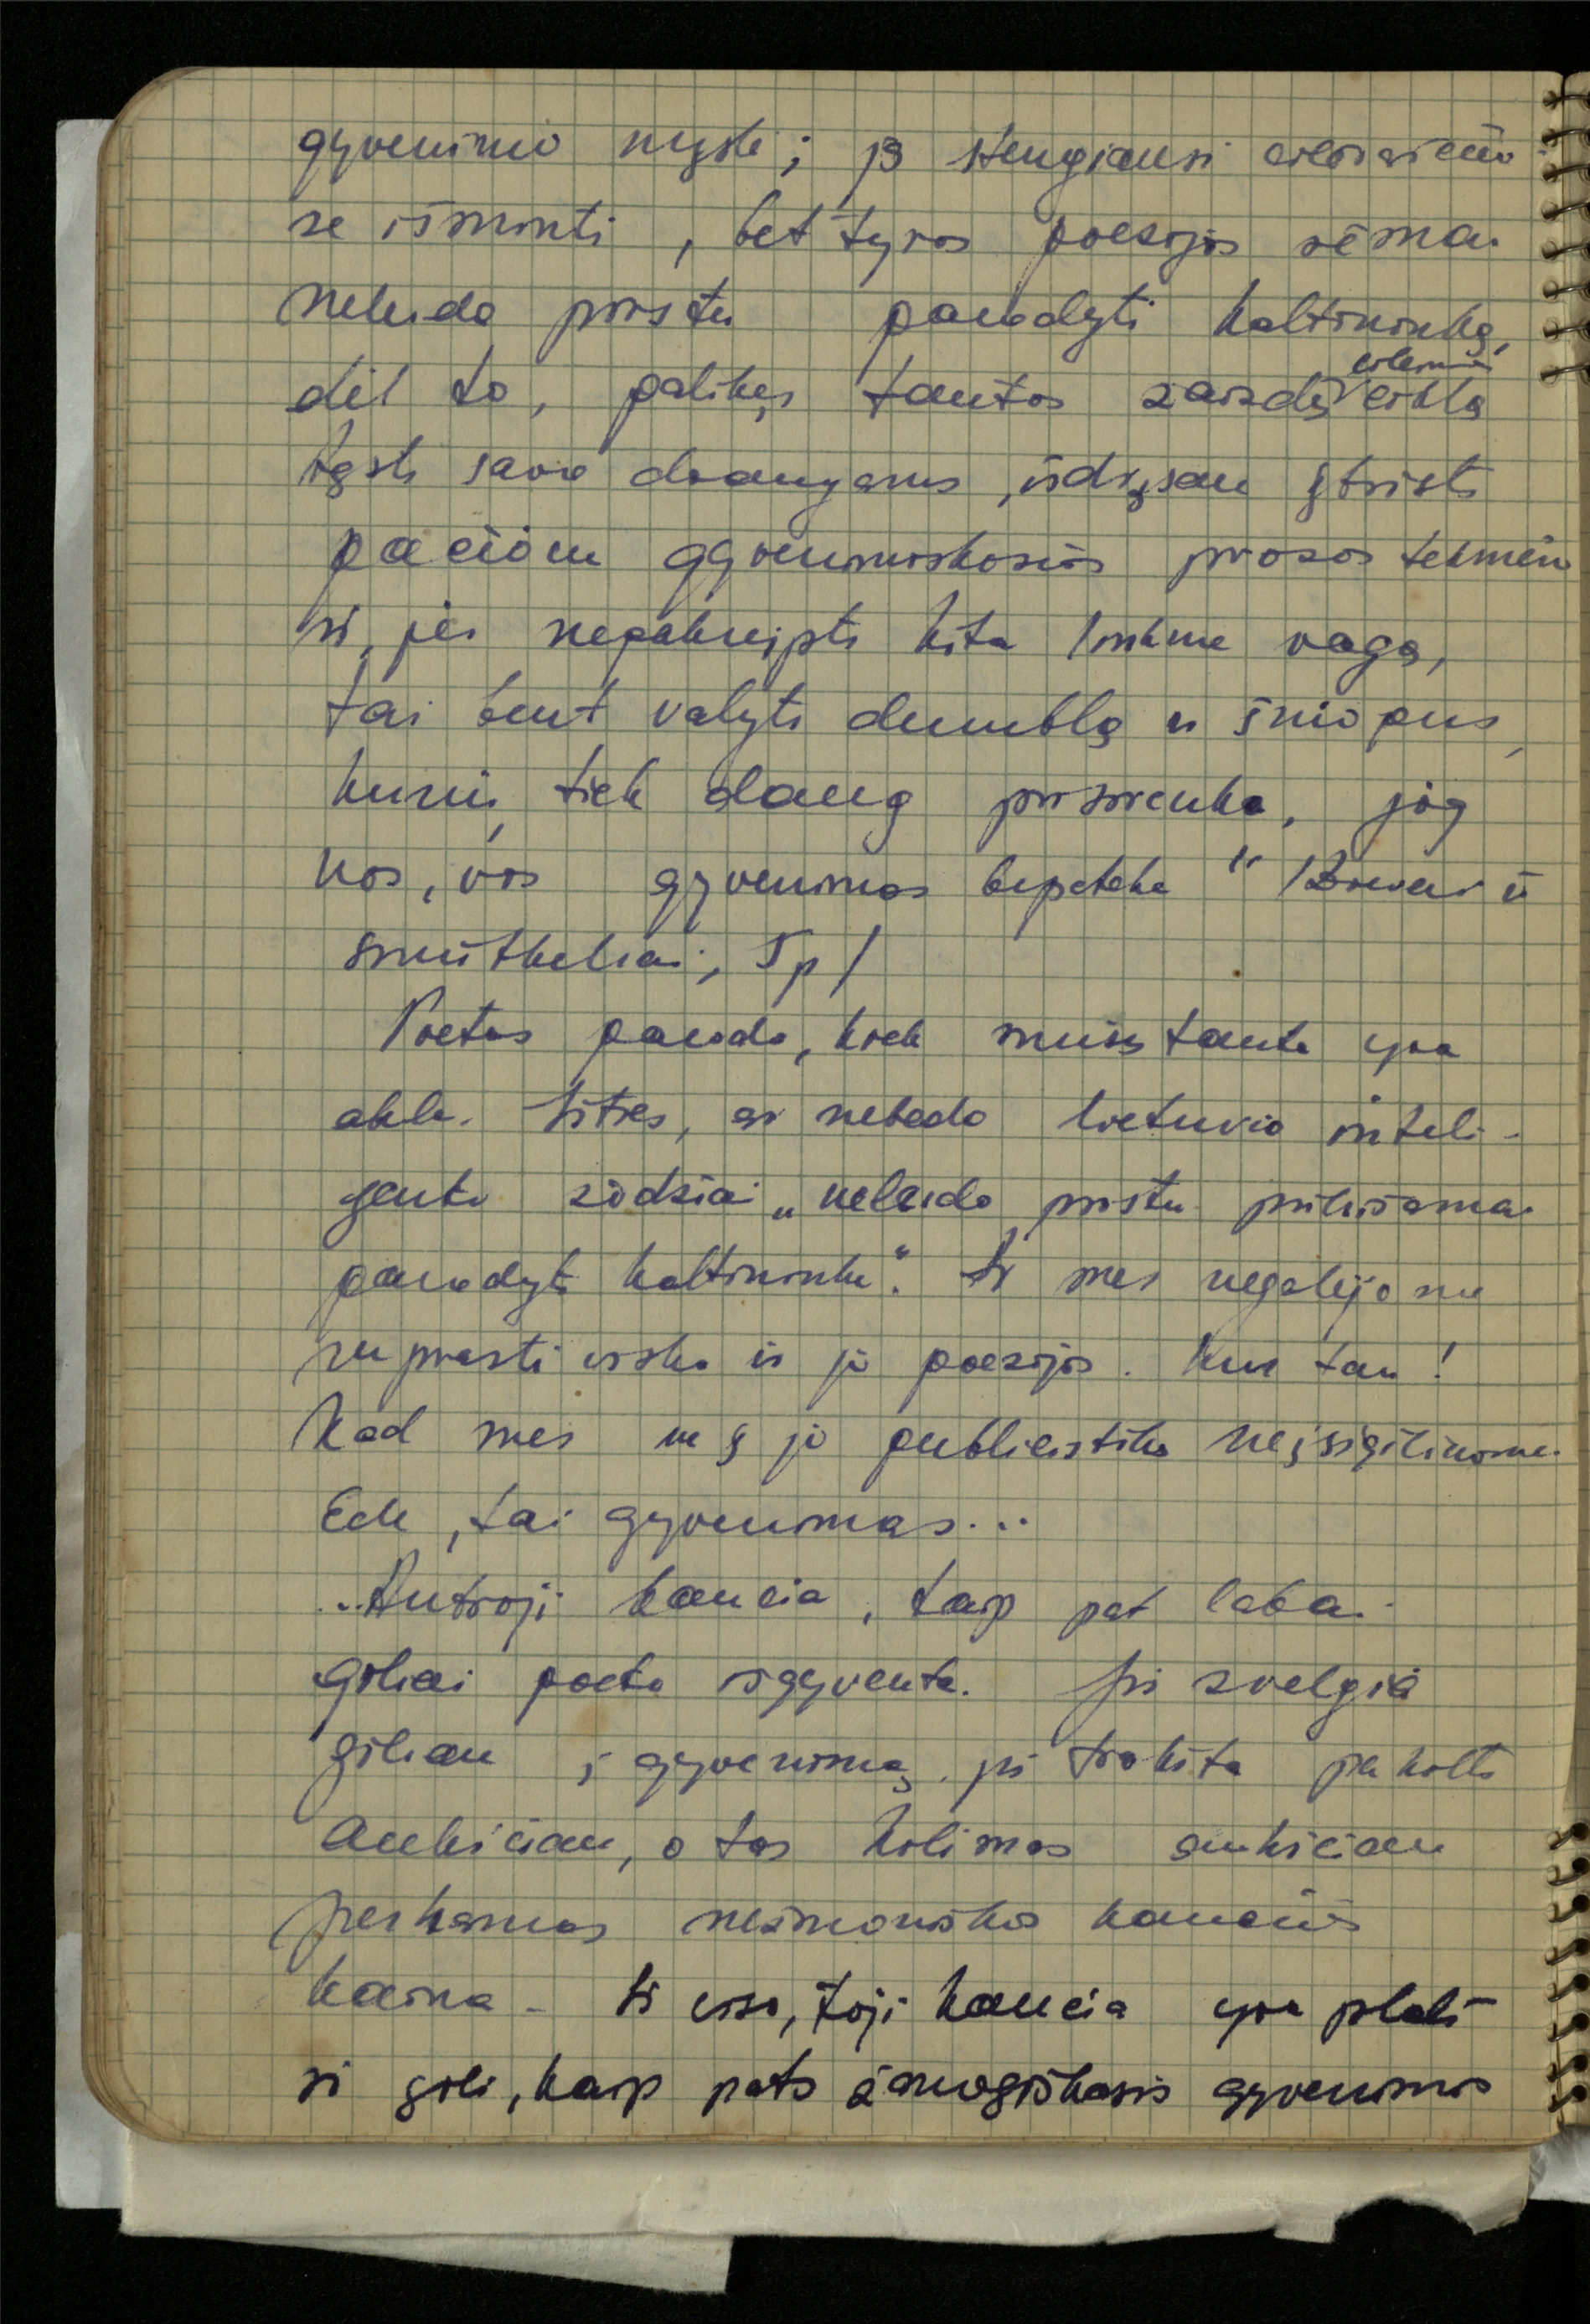 gyvenimo mįslė; ją stengiausi eilėraščiuo-
se išminti, bet tyros poezijos rėmai
neleido pirštu parodyti kaltininką,
dėl to, palikęs tautos žaizdų eilėmis eiklą
tęsti savo draugams, išdrįsau įbristi
pačion gyvenimiškosios prozos tekmėn
ir, jei nepakreipti kita linkme vagą,
tai bent valyti dumblą ir šniopus,
kurių tiek daug prisirenka, jog
vos, vos gyvenimas bepateka" /Barai ir
smūtkeliai, 5p/
Poetas parodo, kiek mūsų tauta yra
akla. Jis, ar nebado lietuvio inteli-
gento žodžiai „neleido pirštu prikišamai
parodyti kaltininku". Ir mes negalėjome
suprasti visko iš jo poezijos. Kur tau!
Kad mes nė į jo publicistiką neįsigilinome.
Ech, tai gyvenimas...
..Antroji kančia, taip pat labai
giliai poeto išgyventa. Jis žvelgia
giliau į gyvenimą, jis trokšta pakilti
aukščiau, o tas kilimas aukščiau
perkamas nežmoniškos kančios
kaina - Iš viso, toji kančia yra plati
ir gili, kaip pats žmogiškasis gyvenimas